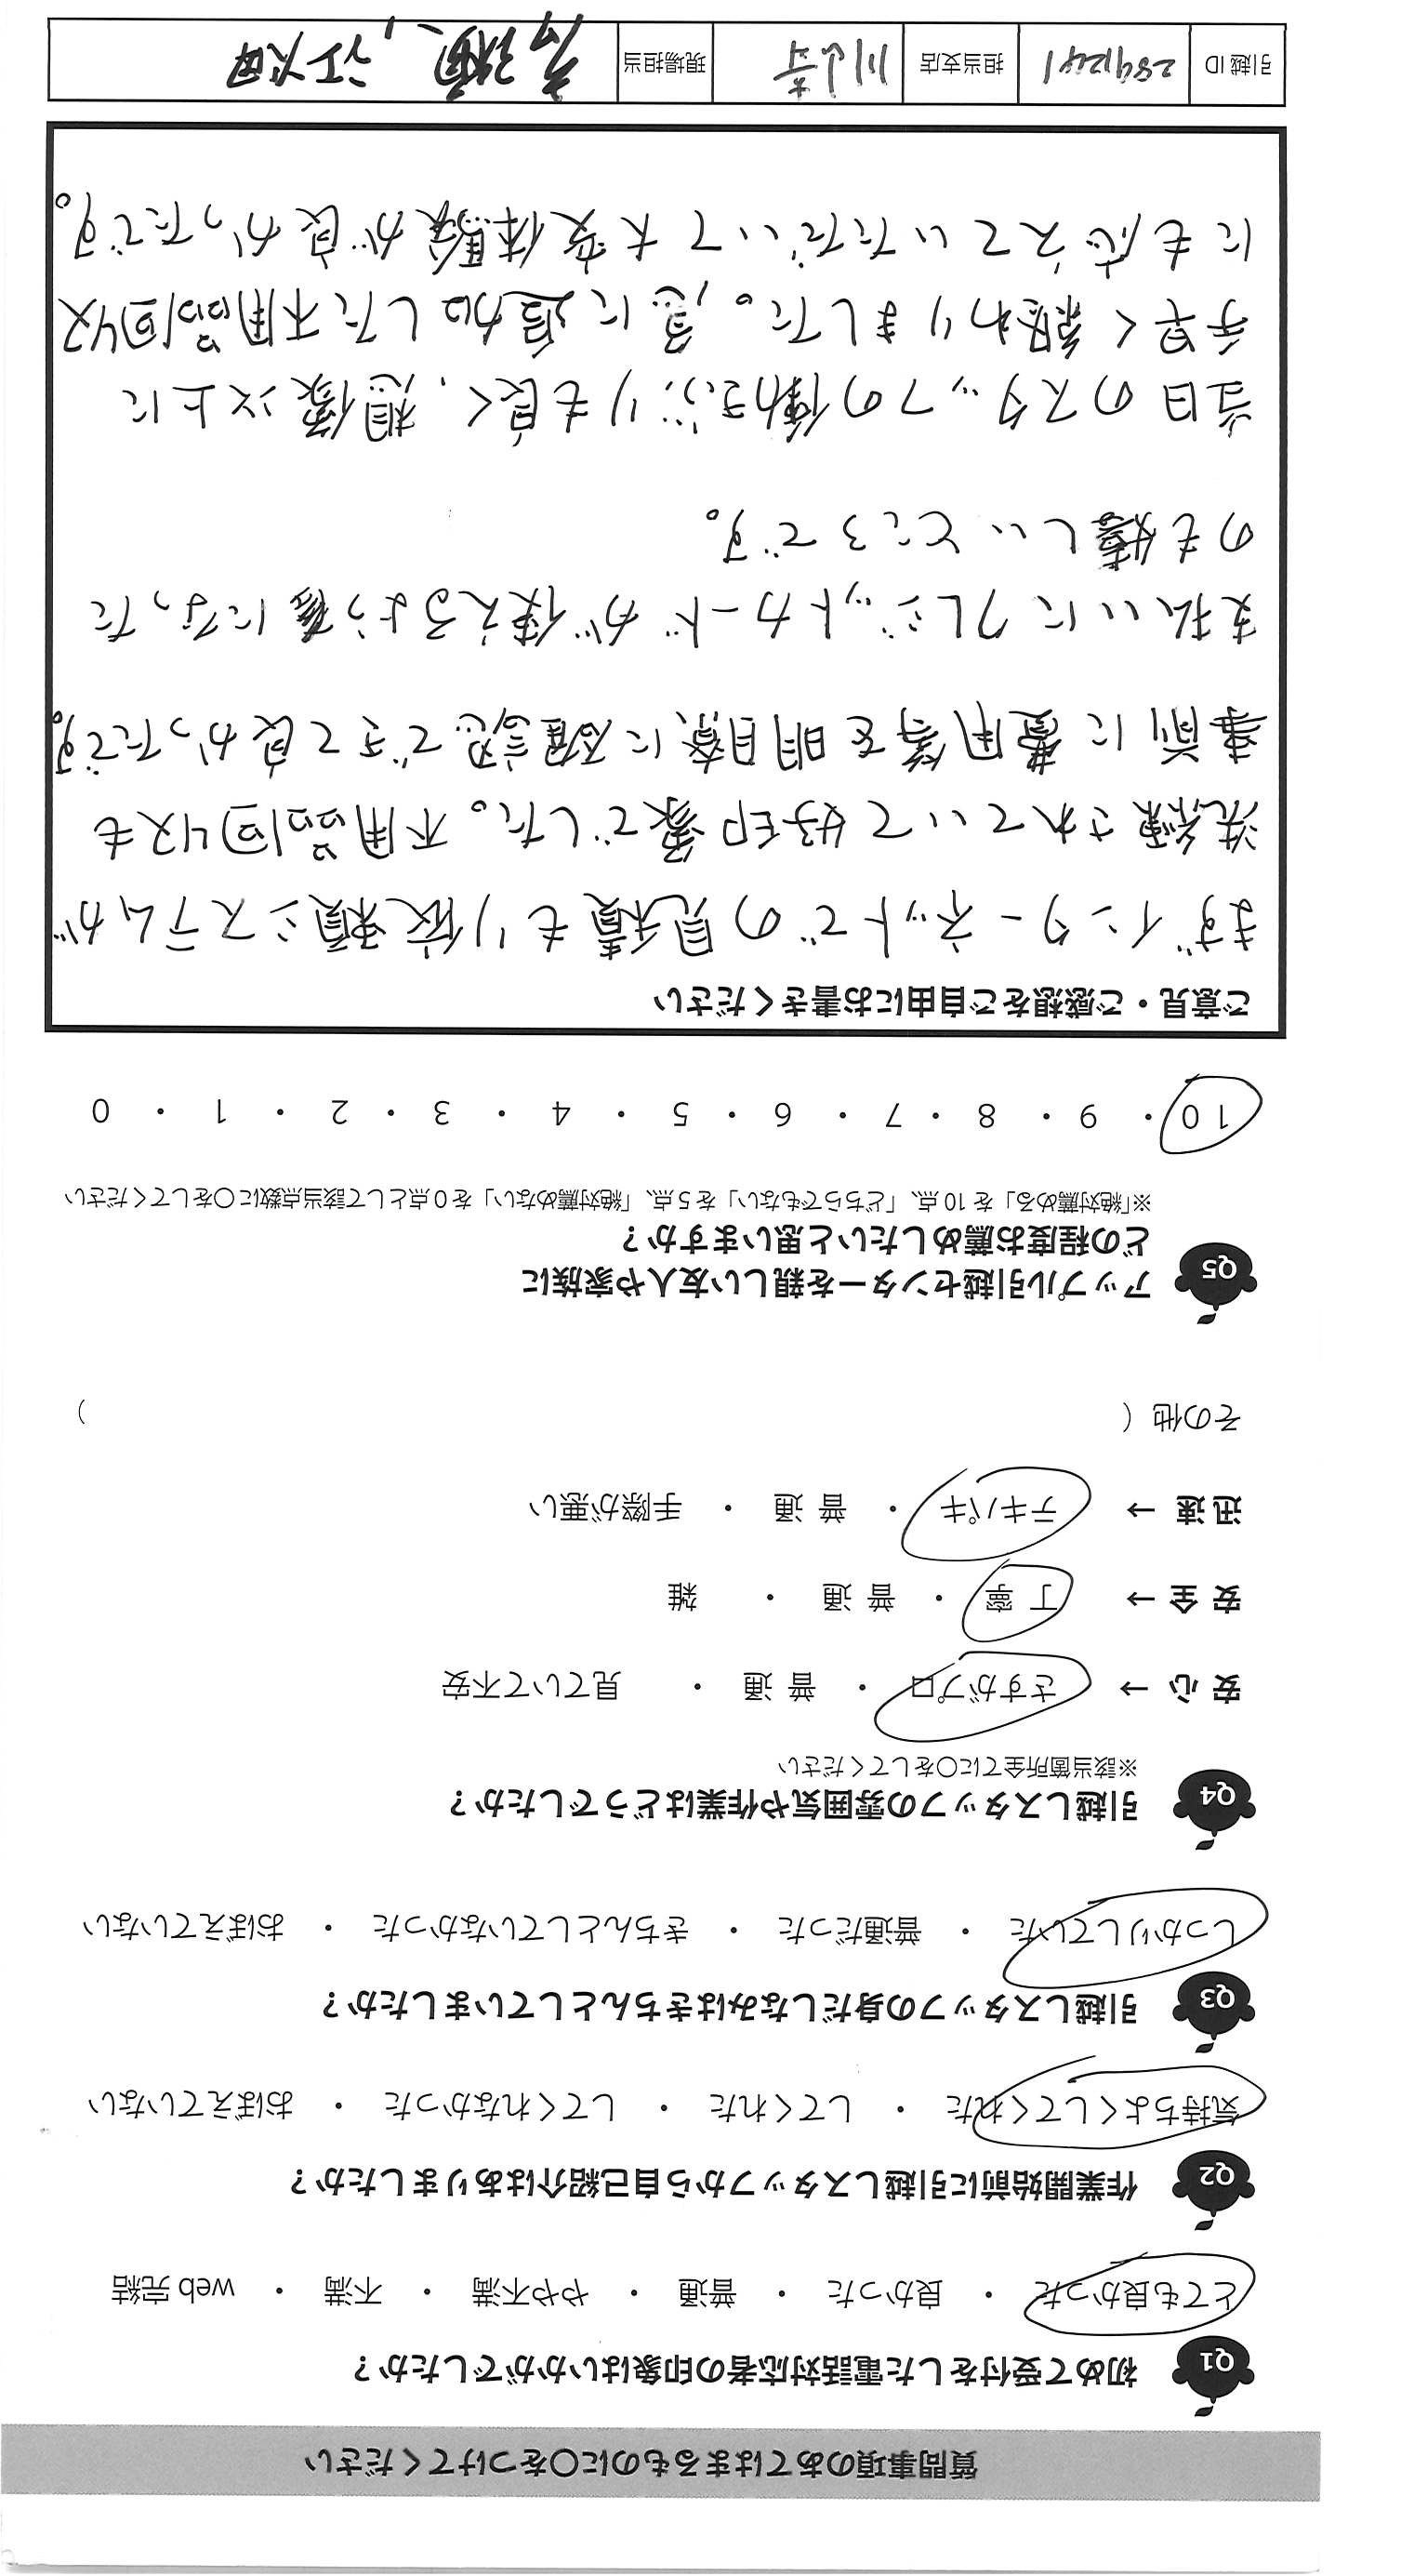 質問事項のあてはまるものに○をつけてください
Q1 初めて受付をした電話対応者の印象はいかがでしたか?
とても良かった ・ 良かった ・ 普通 ・ やや不満 ・ 不満 ・ web 完結
Q2 作業開始前に引越しスタッフから自己紹介はありましたか?
気持ちよくしてくれた ・ してくれた ・ してくれなかった ・ おぼえていない
Q3 引越しスタッフの身だしなみはきちんとしていましたか?
しっかりしていた ・ 普通だった ・ きちんとしていなかった ・ おぼえていない
Q4 引越しスタッフの雰囲気や作業はどうでしたか?
※該当箇所全てに○をしてください
安 心 → さすがプロ ・ 普 通 ・ 見ていて不安
安 全 → 丁 寧 ・ 普 通 ・ 雑
迅 速 → テキパキ ・ 普 通 ・ 手際が悪い
その他 ( )
Q5 アップル引越センターを親しい友人や家族に
どの程度お薦めしたいと思いますか?
※「絶対薦める」を 10 点、「どちらでもない」を 5 点、「絶対薦めない」を 0 点として該当点数に○をしてください
10 ・ 9 ・ 8 ・ 7 ・ 6 ・ 5 ・ 4 ・ 3 ・ 2 ・ 1 ・ 0
ご意見・ご感想をご自由にお書きください
まずインターネットでの見積もり依頼システムが
洗練されていて好印象でした。不用品回収も
事前に費用等を明瞭に確認できて良かったです。
支払いにクレジットカードが使えるようになった
のも嬉しいところです。
当日のスタッフの働きぶりも良く、想像以上に
手早く終わりました。急に追加した不用品回収
にも応えていただいて大変体験が良かったです。
引越 ID 2891241 担当支店 川崎 現場担当